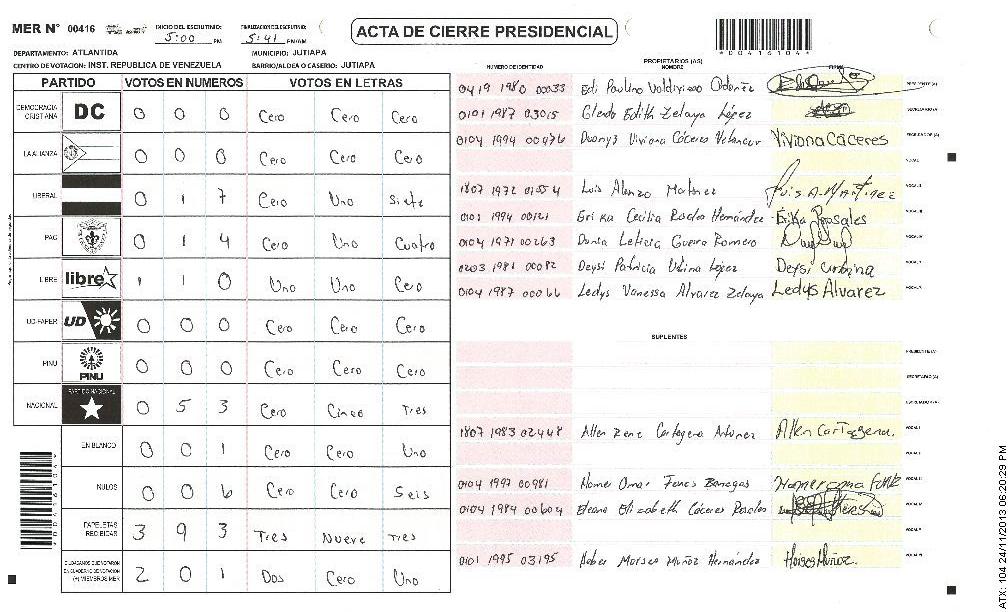 MER Nº 00416
INICIO DEL ESCRUTINIO: 5:00 PM
FINALIZACION DEL ESCRUTINIO: 5:41 PM/AM
ACTA DE CIERRE PRESIDENCIAL
*00416104*
DEPARTAMENTO: ATLANTIDA MUNICIPIO: JUTIAPA
CENTRO DE VOTACION: INST. REPUBLICA DE VENEZUELA BARRIO/ALDEA O CASERIO: JUTIAPA
PARTIDO VOTOS EN NUMEROS VOTOS EN LETRAS
DEMOCRACIA CRISTIANA DC 0 0 0 Cero Cero Cero
LA ALIANZA 0 0 0 Cero Cero Cero
LIBERAL 0 1 7 Cero Uno Siete
PAC 0 1 4 Cero Uno Cuatro
LIBRE libre 1 1 0 Uno Uno Cero
UD-FAPER UD 0 0 0 Cero Cero Cero
PINU PINU 0 0 0 Cero Cero Cero
NACIONAL PARTIDO NACIONAL 0 5 3 Cero Cinco Tres
EN BLANCO 0 0 1 Cero Cero Uno
NULOS 0 0 6 Cero Cero Seis
PAPELETAS RECIBIDAS 3 9 3 Tres Nueve Tres
CIUDADANOS QUE VOTARON EN CUADERNO DE VOTACION (+) MIEMBROS MER 2 0 1 Dos Cero Uno
PROPIETARIOS (AS)
NUMERO DE IDENTIDAD NOMBRE FIRMA
0419 1980 00033 Edi Paulino Valdivieso PRESIDENTE (A)
0101 1987 03015 Glenda Edith Zelaya López SECRETARIO (A)
0104 1994 00476 Viviana Cáceres Viviana Cáceres ESCRUTADOR (A)
VOCAL I
1807 1972 01554 Luis Alonzo Martinez Luis A. Martinez VOCAL II
0101 1994 00121 Erika Cecilia Hernández Erika Rosales VOCAL III
0104 1971 00263 Leticia Romero VOCAL IV
0203 1981 00082 Deysi Patricia Urbina López Deysi Urbina VOCAL V
0104 1987 00066 Ledys Vanessa Alvarez Zelaya Ledys Alvarez VOCAL VI
SUPLENTES
PRESIDENTE (A)
SECRETARIO (A)
ESCRUTADOR (A)
1807 1983 02448 Allen Rene Cartagena Allen Cartagena. VOCAL I
VOCAL II
0104 1997 00981 Homer Omar Funes Banegas VOCAL III
0104 1984 00604 Elizabeth Cáceres Rosales VOCAL IV
VOCAL V
0101 1995 03195 Moises Muñoz Hernández Moises Muñoz. VOCAL VI
ATX: 104 24/11/2013 06:20:29 PM